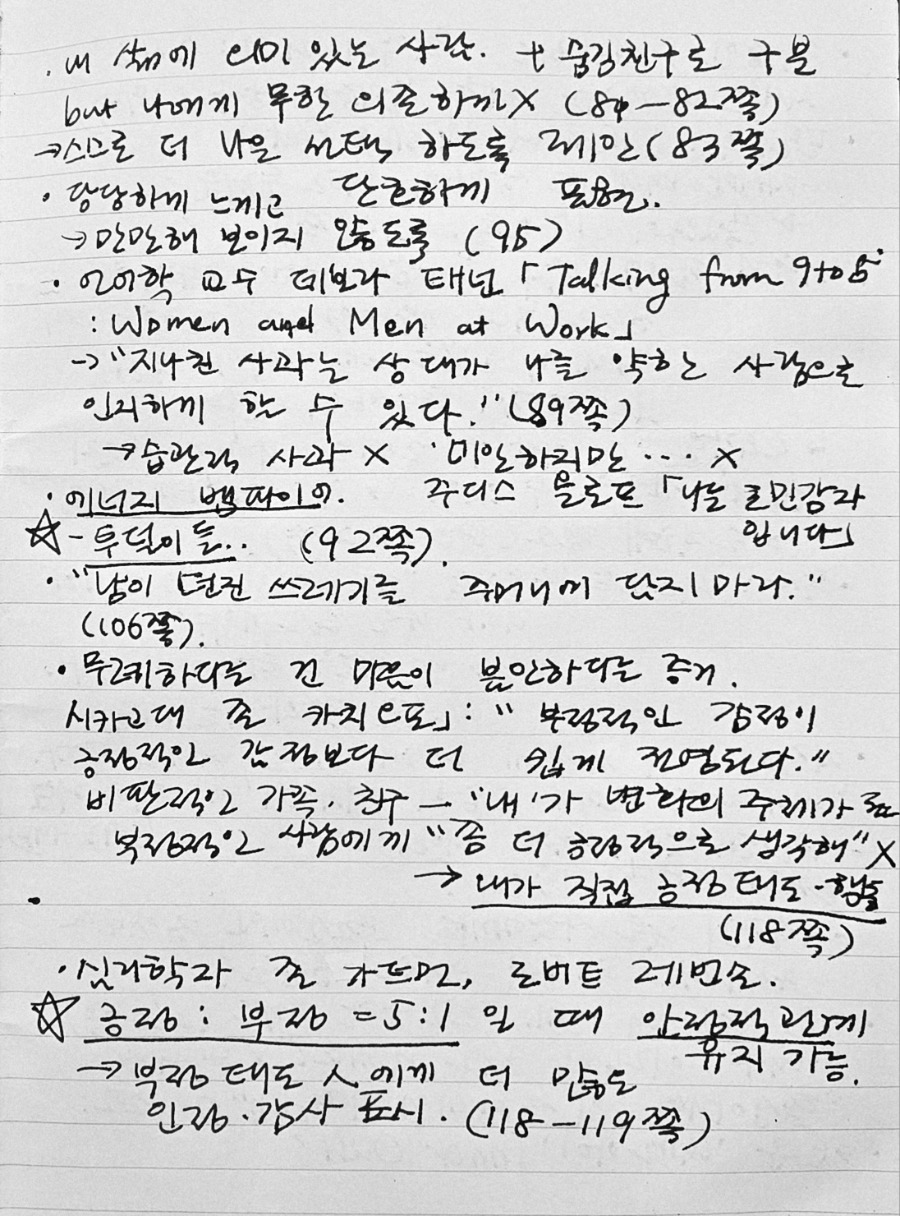 · 내 삶에 의미 있는 사람. + 숨김친구로 구분
but 나에게 무한 의존하게 X (81-82쪽)
→ 스스로 더 나은 선택 하도록 제안 (83쪽)
· 당당하게 느끼고 단호하게 표현.
→ 만만해 보이지 않도록 (95)
· 언어학 교수 데보라 태넌 「Talking from 9 to 5
: Women and Men at Work」
→ "지나친 사과는 상대가 나를 약한 사람으로
인지하게 할 수 있다." (89쪽)
→ 습관적 사과 X "미안하지만 ··· X
· 에너지 뱀파이어. 주디스 올로프 「나는 초민감자
입니다」
☆ - 투덜이들.. (92쪽).
· "남이 던진 쓰레기를 주머니에 담지 마라."
(106쪽).
· 무례하다는 건 마음이 불안하다는 증거.
시카고대 존 카치오포」: " 부정적인 감정이
긍정적인 감정보다 더 쉽게 전염된다."
비판적인 가족·친구 - "내'가 변화의 주체가
부정적인 사람에게 "좀 더 긍정적으로 생각해" X
→ 내가 직접 긍정 태도·행동
(118쪽)
·
· 심리학자 존 가트먼, 로버트 레벤슨.
☆ 긍정 : 부정 = 5:1 일 때 안정적 관계
유지 가능.
→ 부정 태도 人에게 더 많은
인정·감사 표시. (118-119쪽)